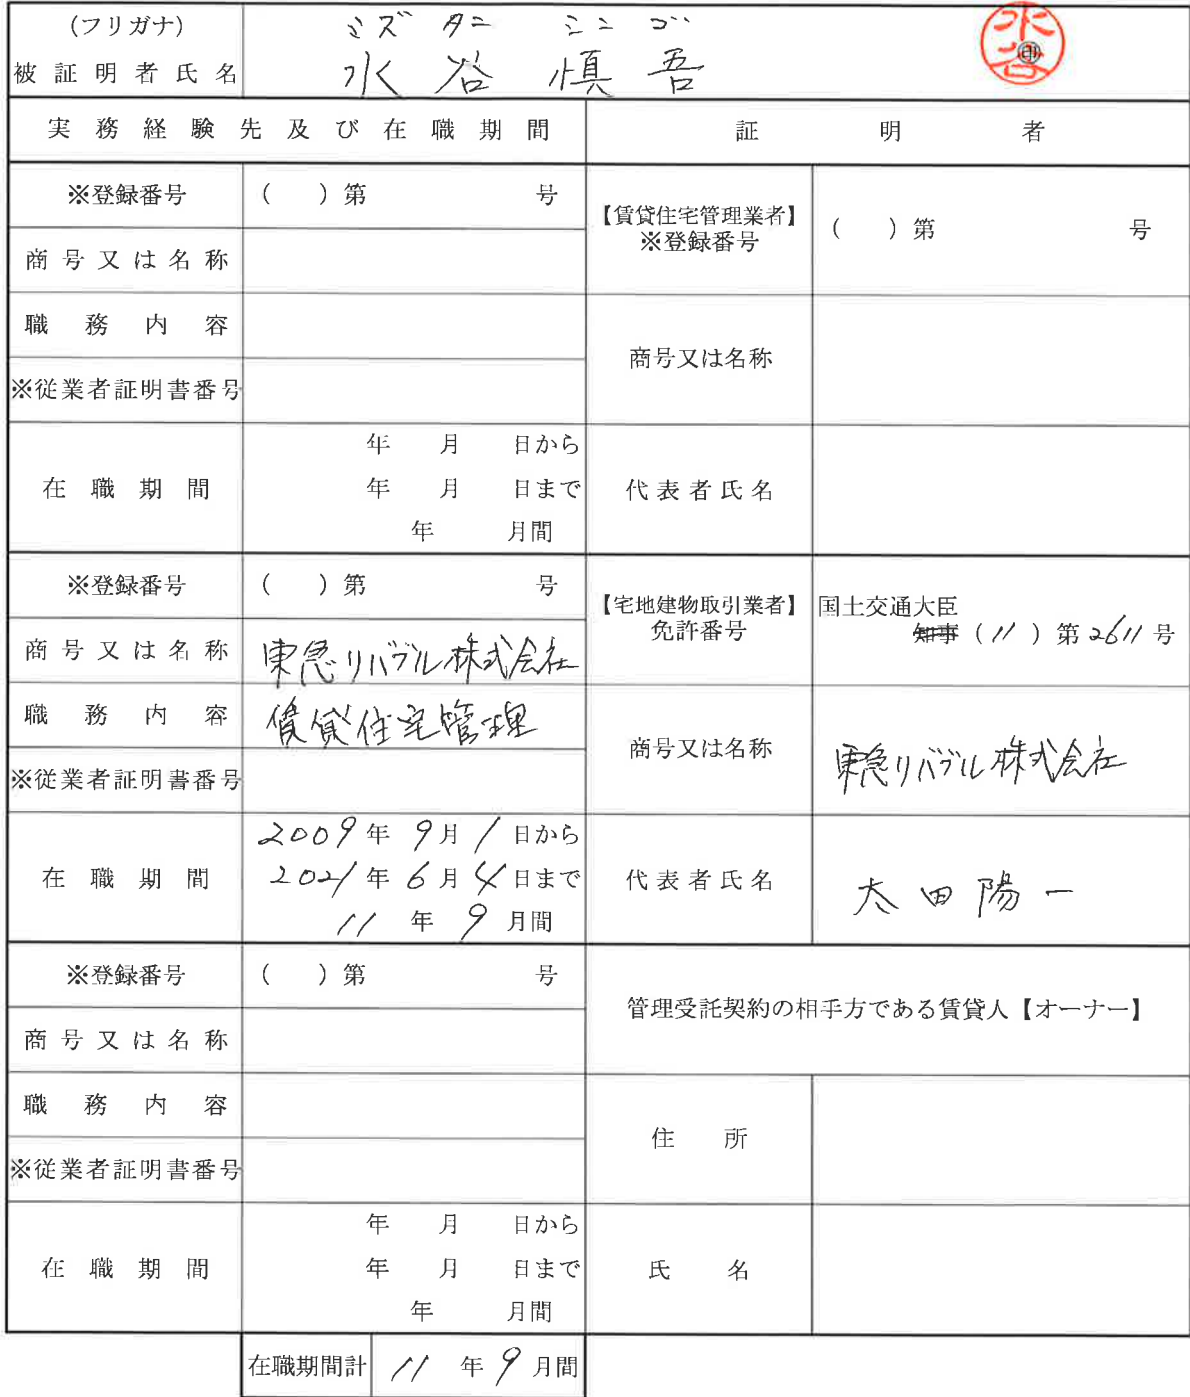 (フリガナ) ミズタニ シンゴ
被証明者氏名 水谷 慎吾 水谷 ㊞
実務経験先及び在職期間 証明者
※登録番号 ( )第 号
【賃貸住宅管理業者】
※登録番号 ( )第 号
商号又は名称
職務内容
商号又は名称
※従業者証明書番号
在職期間
年 月 日から
年 月 日まで
年 月間
代表者氏名
※登録番号 ( )第 号
【宅地建物取引業者】
免許番号
国土交通大臣
知事 (11)第2611号
商号又は名称 東急リバブル株式会社
職務内容 賃貸住宅管理
商号又は名称 東急リバブル株式会社
※従業者証明書番号
在職期間
2009年9月1日から
2021年6月4日まで
11年9月間
代表者氏名 太田陽一
※登録番号 ( )第 号
管理受託契約の相手方である賃貸人【オーナー】
商号又は名称
職務内容
住所
※従業者証明書番号
在職期間
年 月 日から
年 月 日まで
年 月間
氏名
在職期間計 11年9月間